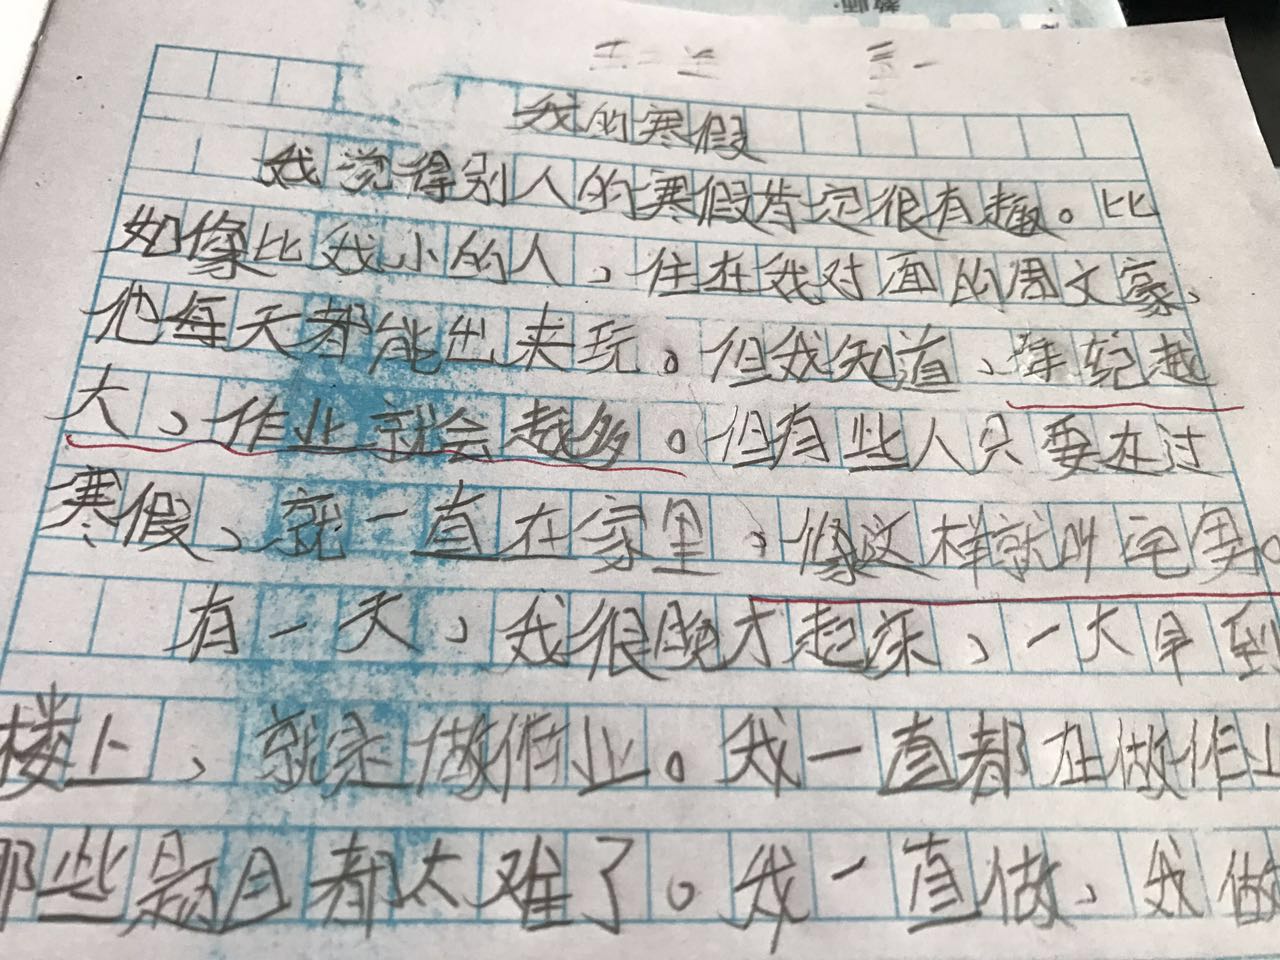 我的寒假
我觉得别人的寒假肯定很有趣。比
如像比我小的人，住在我对面的周文豪，
他每天都能出来玩。但我知道，年纪越
大，作业就会越多。但有些人只要在过
寒假，就一直在家里，像这样就叫宅男。
有一天，我很晚才起床，一大早到
楼上，就是做作业。我一直都在做作业
那些题目都太难了。我一直做，我做